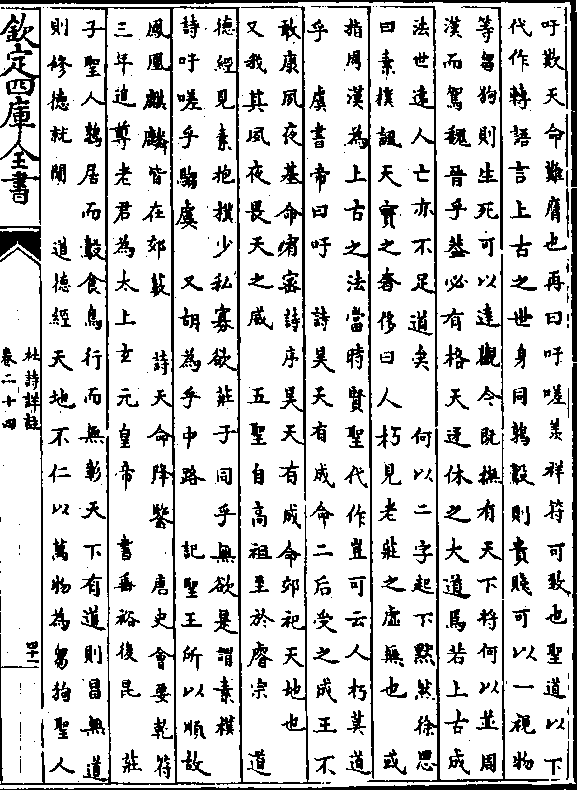 吁歎天命難膺也再曰吁嗟美祥符可致也聖道以下
代作轉語言上古之世身同鶉鷇則貴賤可以一視物
等芻狗則生死可以達觀今既撫有天下將何以並周
漢而駕魏晉乎蓋必有格天迓休之大道焉若上古成
法世遠人亡亦不足道矣　何以二字起下黙然徐思
曰素樸諷天寶之奢侈曰人朽見老莊之虛無也　或
指周漢為上古之法當時賢聖代作豈可云人朽莫道
乎　虞書帝曰吁　詩昊天有成命二后受之成王不
敢康夙夜基命宥密詩序昊天有成命郊祀天地也
又我其夙夜畏天之威　五聖自髙祖至於睿宗　道
德經見素抱樸少私寡欲莊子同乎無欲是謂素樸
詩吁嗟乎騶虞　又胡為乎中路　記聖王所以順故
鳳凰麒麟皆在郊藪　詩天命降鑒　唐史會要乾符
三年追尊老君為太上玄元皇帝　書垂裕後昆　莊
子聖人鶉居而鷇食鳥行而無彰天下有道則昌無道
則修德就閒　道德經天地不仁以萬物為芻狗聖人
欽定四庫全書
杜詩詳註
卷二十四
四十二